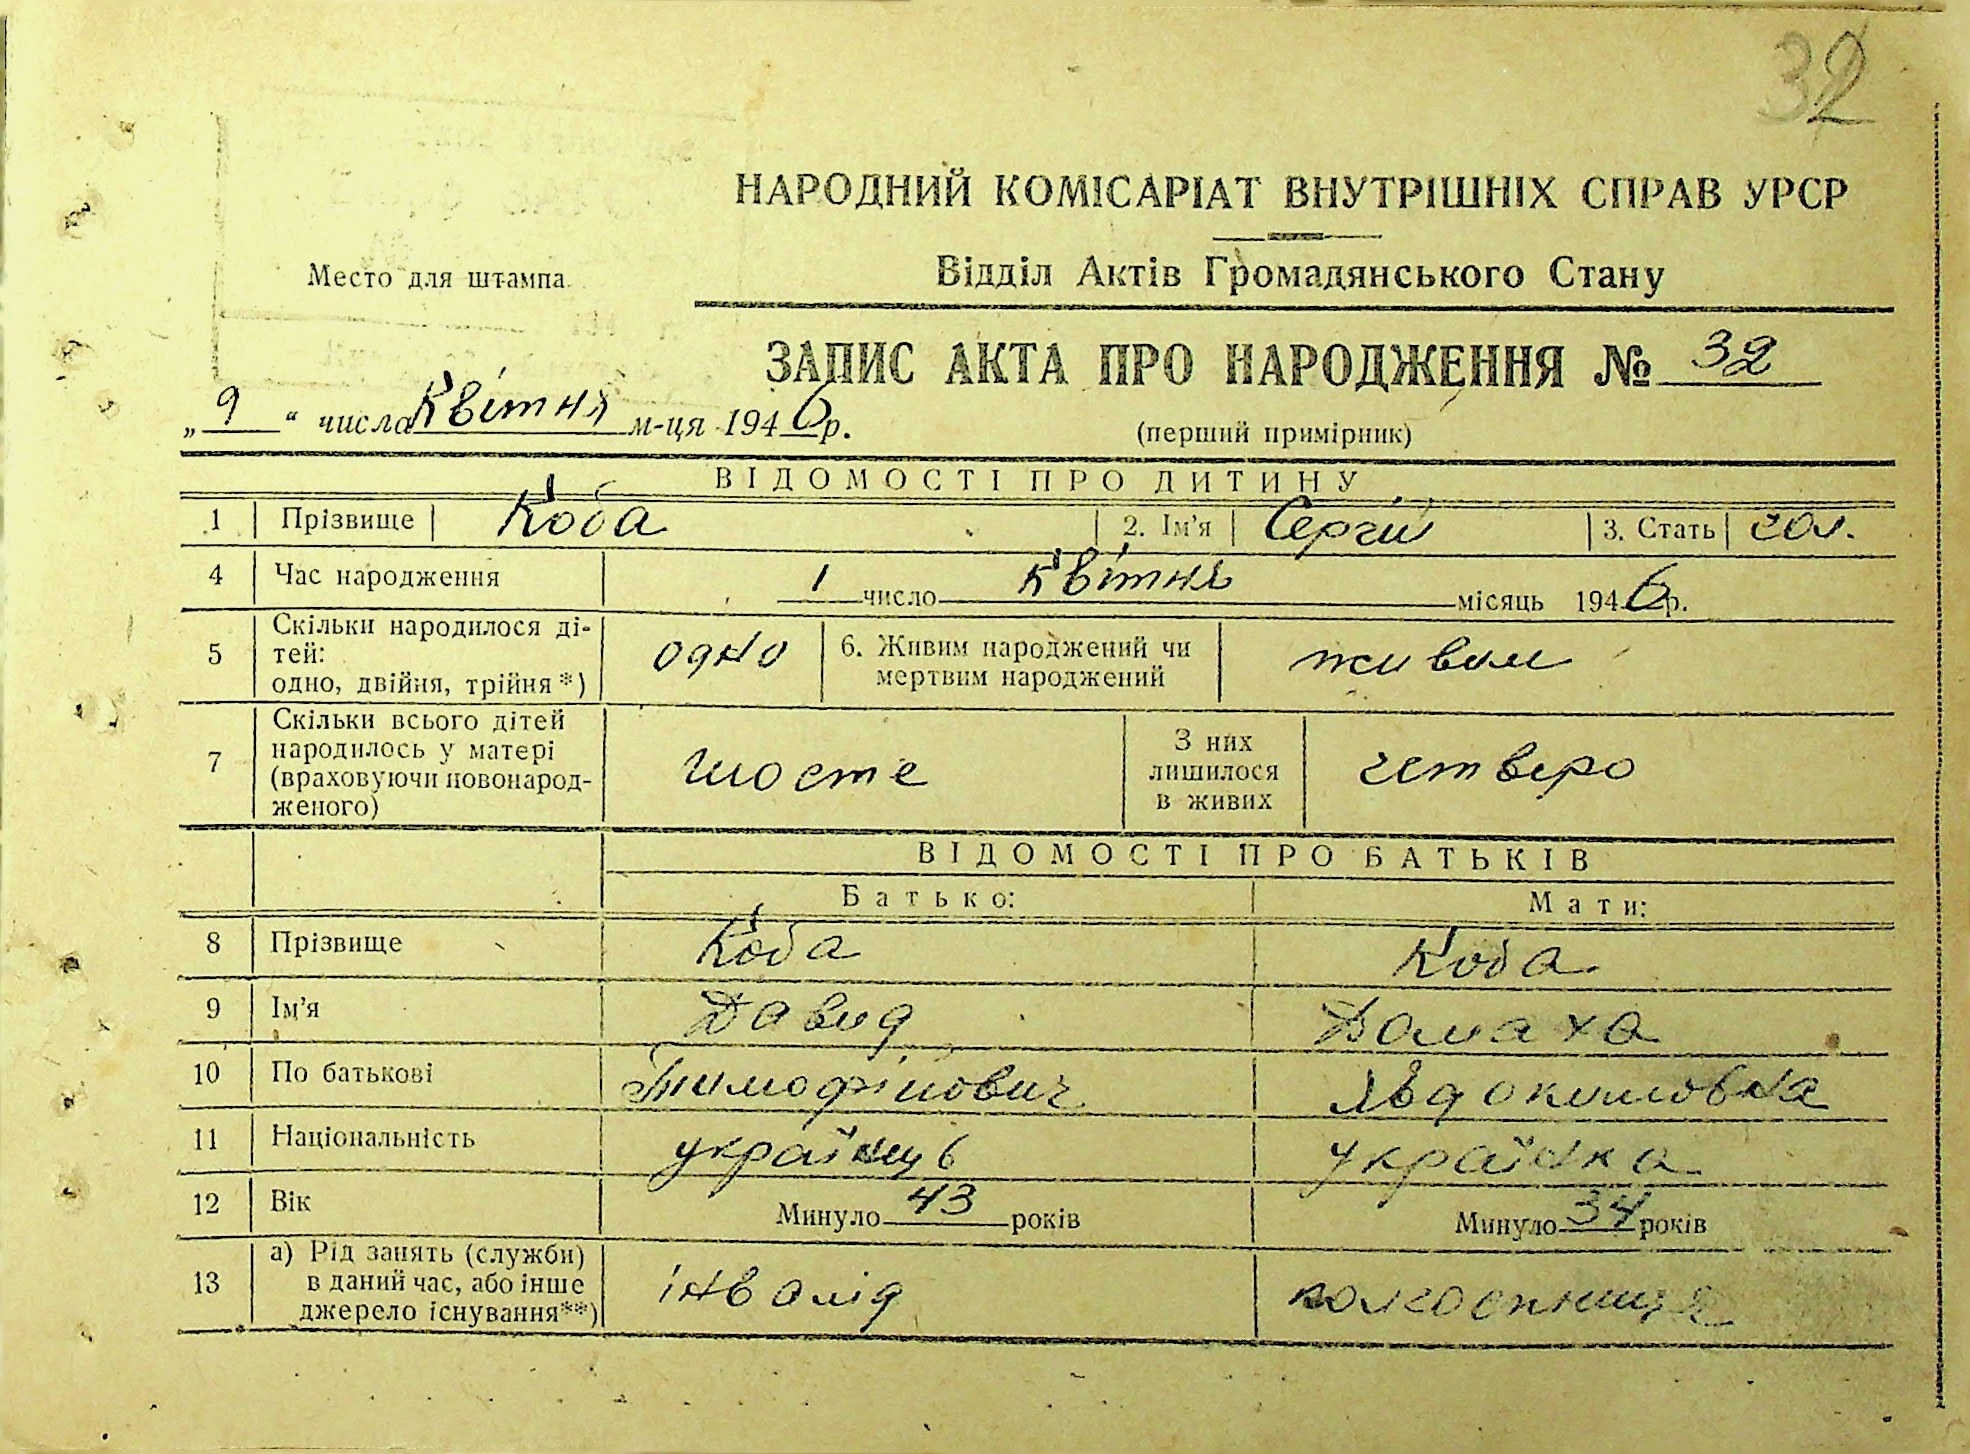 32
НАРОДНИЙ КОМІСАРІАТ ВНУТРІШНІХ СПРАВ УРСР
Відділ Актів Громадянського Стану
Место для штампа
ЗАПИС АКТА ПРО НАРОДЖЕННЯ № 32
„9“ числа Квітня м-ця 1946 р.
(перший примірник)
ВІДОМОСТІ ПРО ДИТИНУ
1 Прізвище Коба 2. Ім'я Сергій 3. Стать чол.
4 Час народження 1 число Квітня місяць 1946 р.
5 Скільки народилося ді-
тей:
одно, двійня, трійня*) одно 6. Живим народжений чи
мертвим народжений живим
7 Скільки всього дітей
народилось у матері
(враховуючи новонарод-
женого) шосте З них
лишилося
в живих четверо
ВІДОМОСТІ ПРО БАТЬКІВ
Батько: Мати:
8 Прізвище Коба Коба
9 Ім'я Давид Домаха
10 По батькові Тимофійович Явдокимовна
11 Національність українць українка
12 Вік Минуло 43 років Минуло 34 років
13 а) Рід занять (служби)
в даний час, або інше
джерело існування**) інвалід колгоспниця